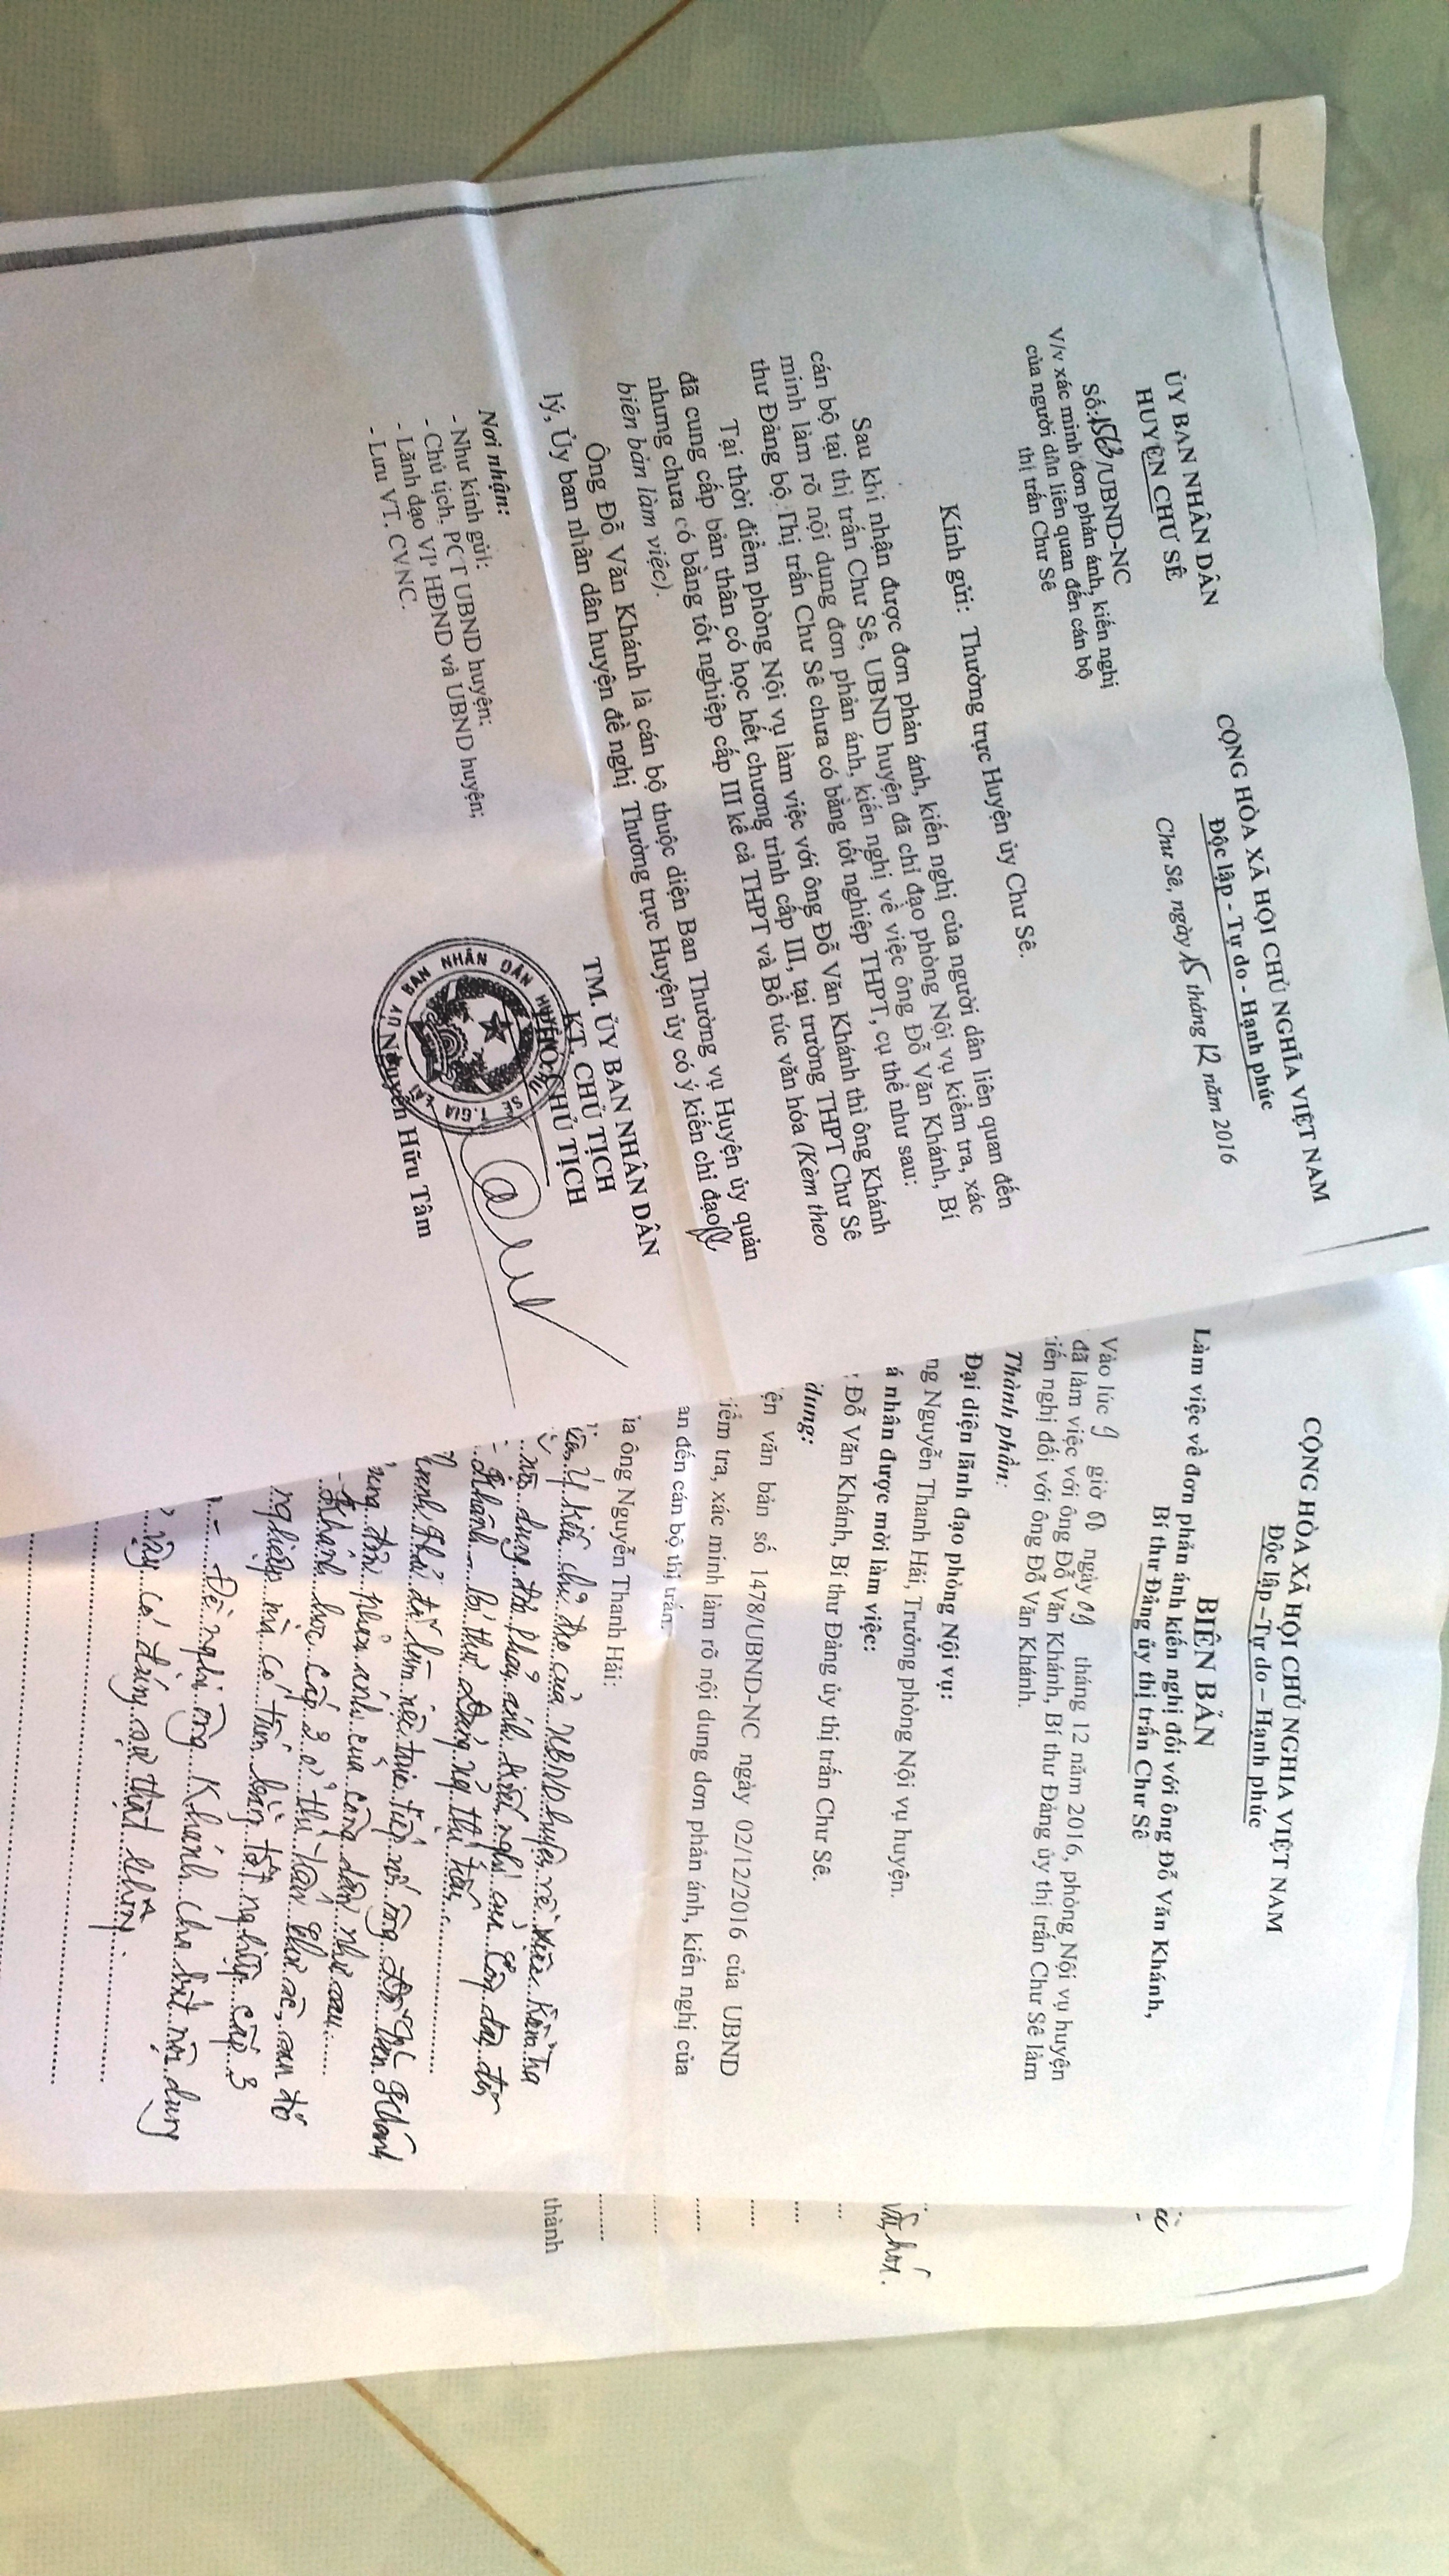 ỦY BAN NHÂN DÂN
HUYỆN CHƯ SÊ
Số: 1563/UBND-NC
V/v xác minh đơn phản ánh, kiến nghị
của người dân liên quan đến cán bộ
thị trấn Chư Sê
CỘNG HÒA XÃ HỘI CHỦ NGHĨA VIỆT NAM
Độc lập - Tự do - Hạnh phúc
Chư Sê, ngày 15 tháng 12 năm 2016
Kính gửi: Thường trực Huyện ủy Chư Sê.
Sau khi nhận được đơn phản ánh, kiến nghị của người dân liên quan đến
cán bộ tại thị trấn Chư Sê, UBND huyện đã chỉ đạo phòng Nội vụ kiểm tra, xác
minh làm rõ nội dung đơn phản ánh, kiến nghị về việc ông Đỗ Văn Khánh, Bí
thư Đảng bộ Thị trấn Chư Sê chưa có bằng tốt nghiệp THPT, cụ thể như sau:
Tại thời điểm phòng Nội vụ làm việc với ông Đỗ Văn Khánh thì ông Khánh
đã cung cấp bản thân có học hết chương trình cấp III, tại trường THPT Chư Sê
nhưng chưa có bằng tốt nghiệp cấp III kể cả THPT và Bổ túc văn hóa (Kèm theo
biên bản làm việc).
Ông Đỗ Văn Khánh là cán bộ thuộc diện Ban Thường vụ Huyện ủy quản
lý, Ủy ban nhân dân huyện đề nghị Thường trực Huyện ủy có ý kiến chỉ đạo
Nơi nhận:
- Như kính gửi;
- Chủ tịch, PCT UBND huyện;
- Lãnh đạo VP HĐND và UBND huyện;
- Lưu VT, CVNC.
TM. ỦY BAN NHÂN DÂN
KT. CHỦ TỊCH
PHÓ CHỦ TỊCH
ỦY BAN NHÂN DÂN HUYỆN CHƯ SÊ T.GIA LAI
Nguyễn Hữu Tâm
CỘNG HÒA XÃ HỘI CHỦ NGHĨA VIỆT NAM
Độc lập –Tự do – Hạnh phúc
BIÊN BẢN
Làm việc về đơn phản ánh kiến nghị đối với ông Đỗ Văn Khánh,
Bí thư Đảng ủy thị trấn Chư Sê
Vào lúc 9 giờ ngày 09 tháng 12 năm 2016, phòng Nội vụ huyện
đã làm việc với ông Đỗ Văn Khánh, Bí thư Đảng ủy thị trấn Chư Sê làm
iến nghị đối với ông Đỗ Văn Khánh.
Thành phần:
Đại diện lãnh đạo phòng Nội vụ:
ng Nguyễn Thanh Hải, Trưởng phòng Nội vụ huyện.
á nhân được mời làm việc:
Đỗ Văn Khánh, Bí thư Đảng ủy thị trấn Chư Sê.
dung:
ện văn bản số 1478/UBND-NC ngày 02/12/2016 của UBND
iểm tra, xác minh làm rõ nội dung đơn phản ánh, kiến nghị của
an đến cán bộ thị trấn.
ủa ông Nguyễn Thanh Hải:
ý kiến chỉ đạo của UBND huyện về việc kiểm tra
nội dung đơn phản ánh kiến nghị của công dân đối
Khánh bí thư Đảng ủy thị trấn
Thanh Hải đã làm việc trực tiếp với ông Đỗ Văn Khánh
dung đơn phản ánh của công dân như sau:
- Khánh học cấp 3 ở thị trấn Chư Sê, sau đó
nghiệp mà có tấm bằng tốt nghiệp cấp 3
- Đề nghị ông Khánh cho biết nội dung
vậy có đúng sự thật không.
văn hoá.
thành